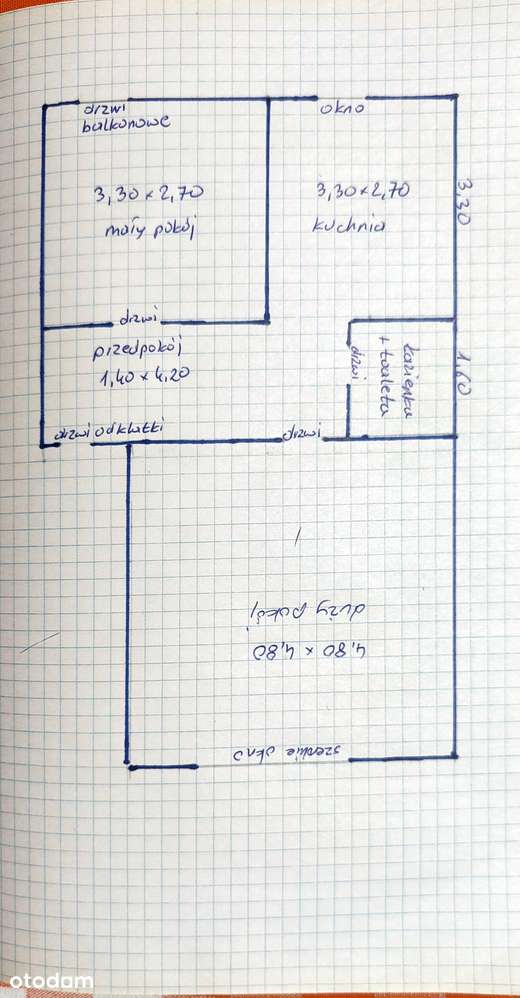 drzwi
balkonowe
okno
3,30 x 2,70
mały pokój
3,30 x 2,70
kuchnia
3,30
drzwi
przedpokój
1,40 x 4,20
drzwi
łazienka
+ toaleta
1,60
drzwi od klatki
drzwi
duży pokój
4,80 x 4,80
szerokie okno
otodom